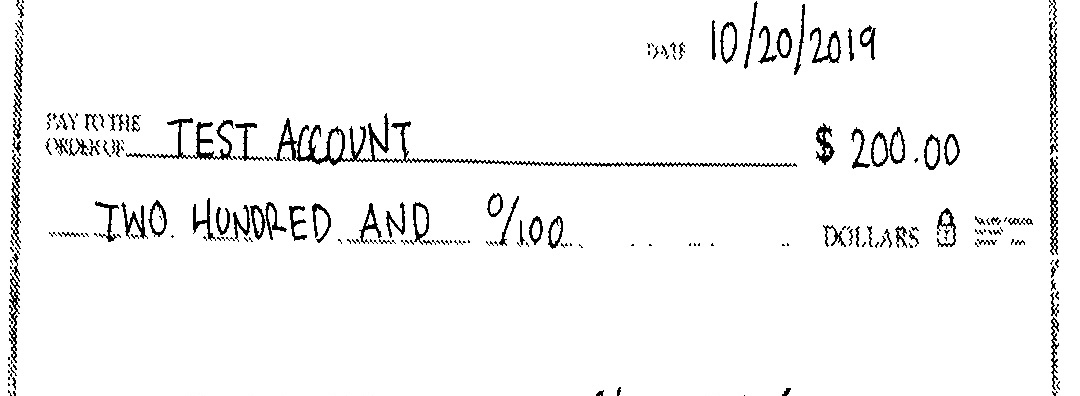 DATE 10/20/2019
PAY TO THE
ORDER OF TEST ACCOUNT $ 200.00
TWO HUNDRED AND 0/100 DOLLARS